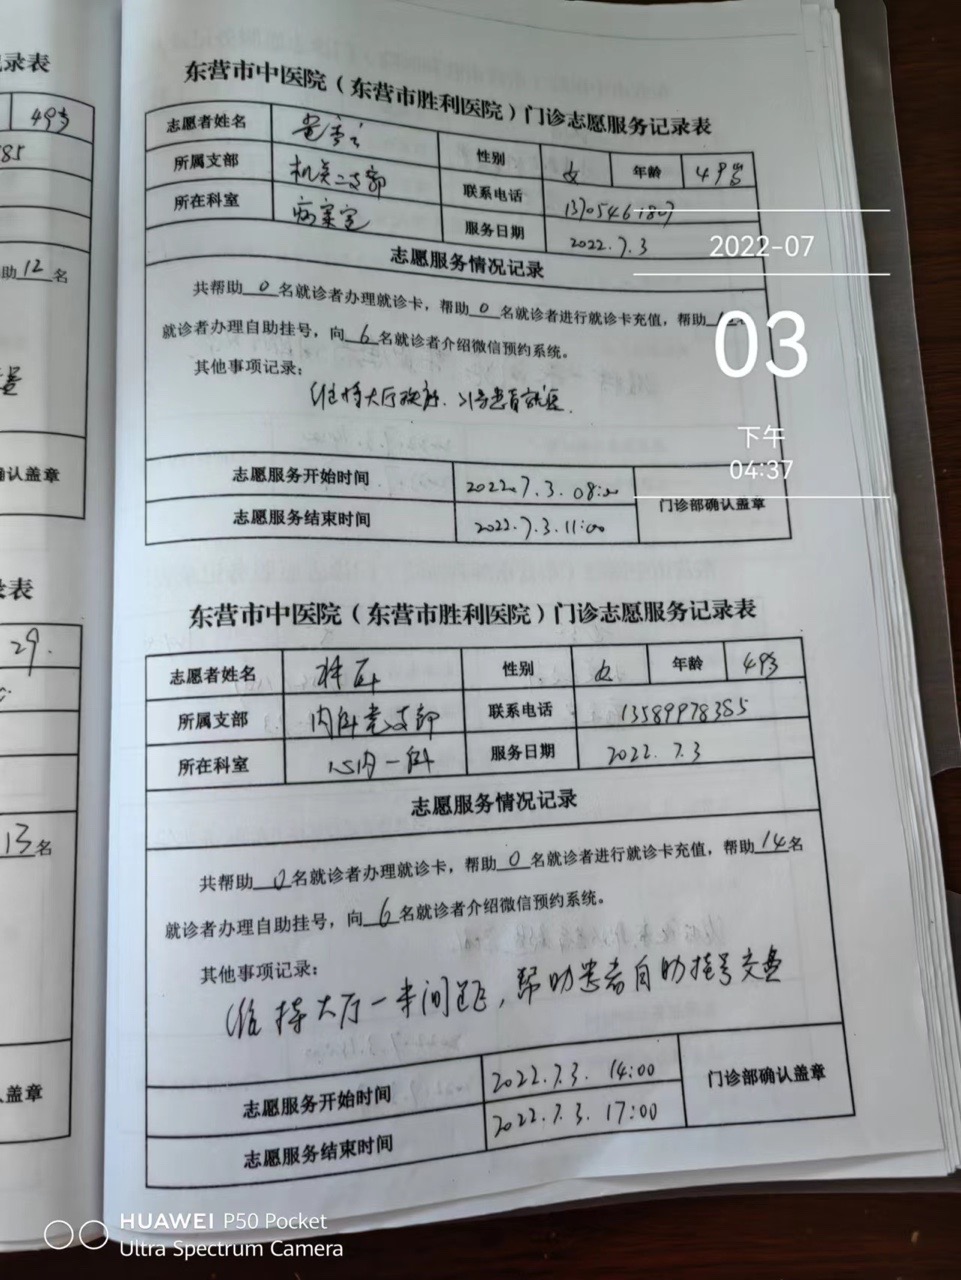 录表
49岁
85
助12名
确认盖章
录表
29.
13名
盖章
东营市中医院（东营市胜利医院）门诊志愿服务记录表
志愿者姓名
性别 女 年龄 49岁
所属支部 机关二支部 联系电话
所在科室 病案室 服务日期 2022.7.3
志愿服务情况记录
共帮助0名就诊者办理就诊卡，帮助0名就诊者进行就诊卡充值，帮助
就诊者办理自助挂号，向6名就诊者介绍微信预约系统。
其他事项记录：
维持大厅秩序.
志愿服务开始时间 2022.7.3.08:00
门诊部确认盖章
志愿服务结束时间 2022.7.3.11:00
2022-07
03
下午
04:37
东营市中医院（东营市胜利医院）门诊志愿服务记录表
志愿者姓名 性别 女 年龄 49岁
所属支部 内科党支部 联系电话 13589978385
所在科室 心内一科 服务日期 2022.7.3
志愿服务情况记录
共帮助0名就诊者办理就诊卡，帮助0名就诊者进行就诊卡充值，帮助14名
就诊者办理自助挂号，向6名就诊者介绍微信预约系统。
其他事项记录：
维持大厅一米间距，帮助患者自助挂号交费
志愿服务开始时间 2022.7.3. 14:00
门诊部确认盖章
志愿服务结束时间 2022.7.3. 17:00
HUAWEI P50 Pocket
Ultra Spectrum Camera